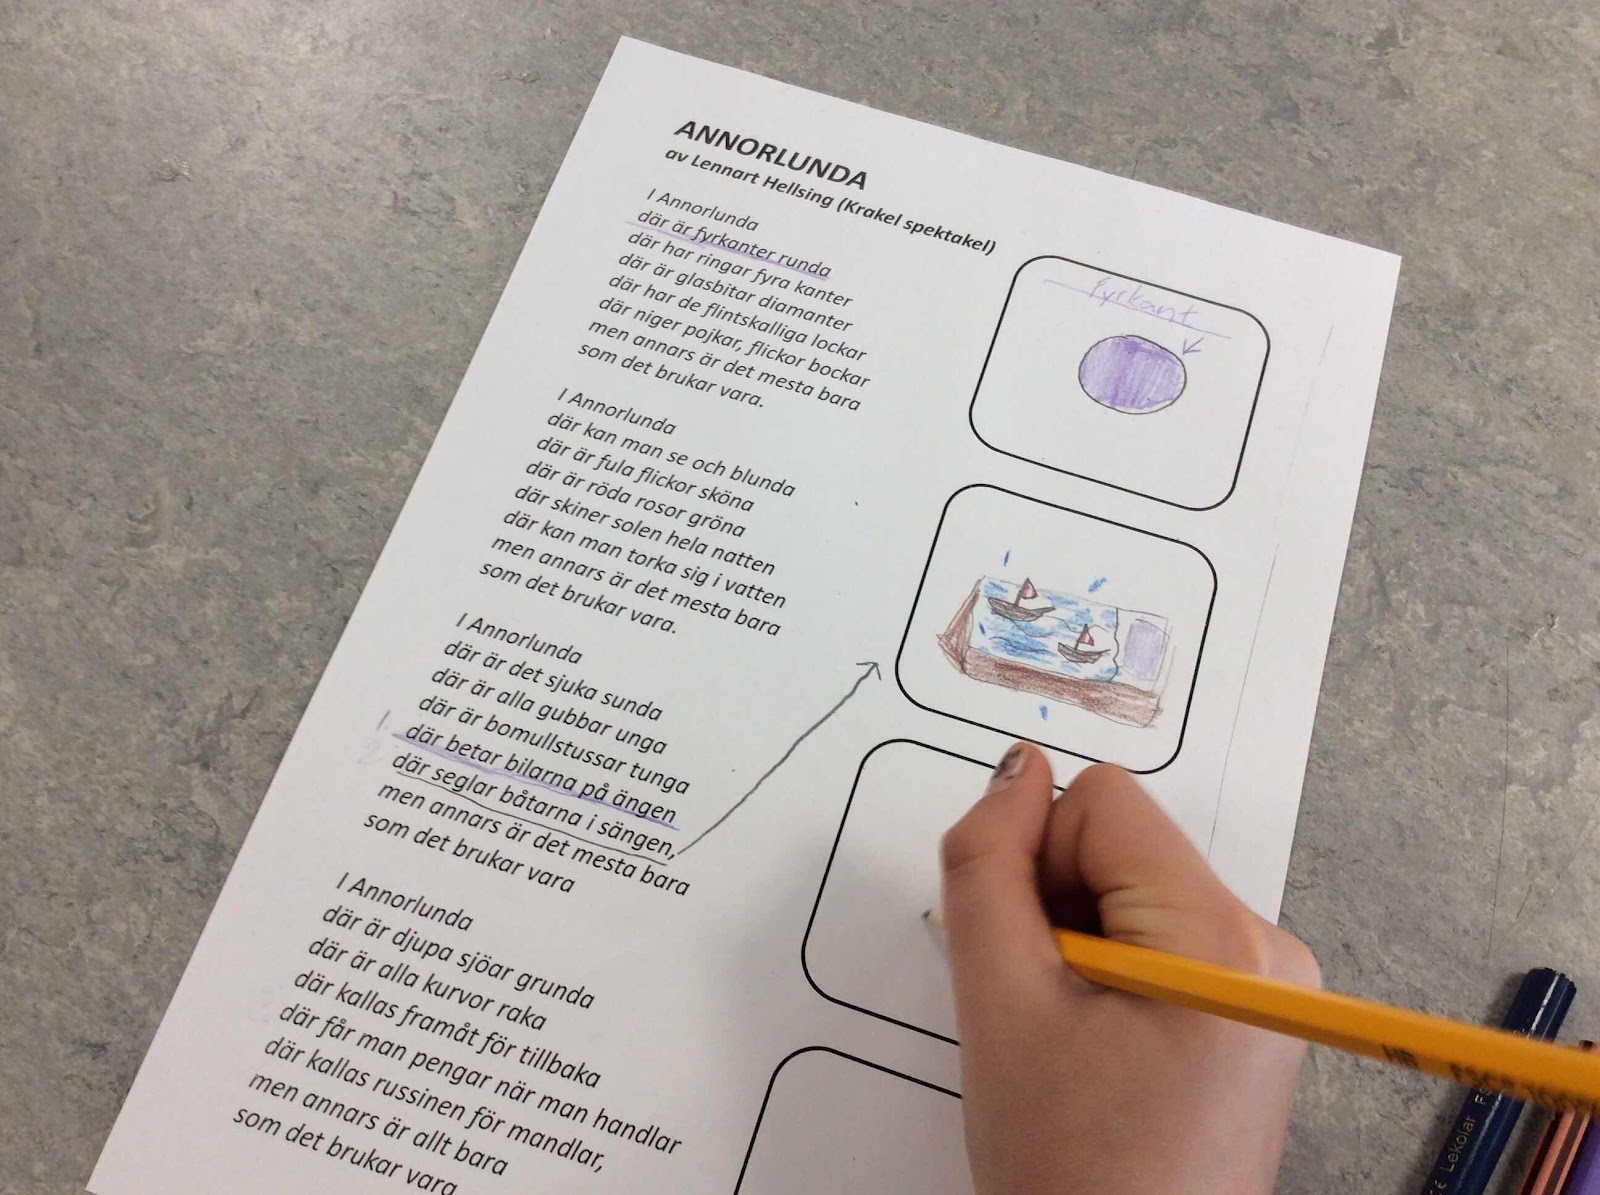 ANNORLUNDA
av Lennart Hellsing (Krakel spektakel)
I Annorlunda
där är fyrkanter runda
där har ringar fyra kanter
där är glasbitar diamanter
där har de flintskalliga lockar
där niger pojkar, flickor bockar
men annars är det mesta bara
som det brukar vara.
I Annorlunda
där kan man se och blunda
där är fula flickor sköna
där är röda rosor gröna
där skiner solen hela natten
där kan man torka sig i vatten
men annars är det mesta bara
som det brukar vara.
I Annorlunda
där är det sjuka sunda
där är alla gubbar unga
där är bomullstussar tunga
1. där betar bilarna på ängen
2 där seglar båtarna i sängen,
men annars är det mesta bara
som det brukar vara
I Annorlunda
där är djupa sjöar grunda
där är alla kurvor raka
där kallas framåt för tillbaka
där får man pengar när man handlar
där kallas russinen för mandlar,
men annars är allt bara
som det brukar vara
fyrkant
HB
Lekolar